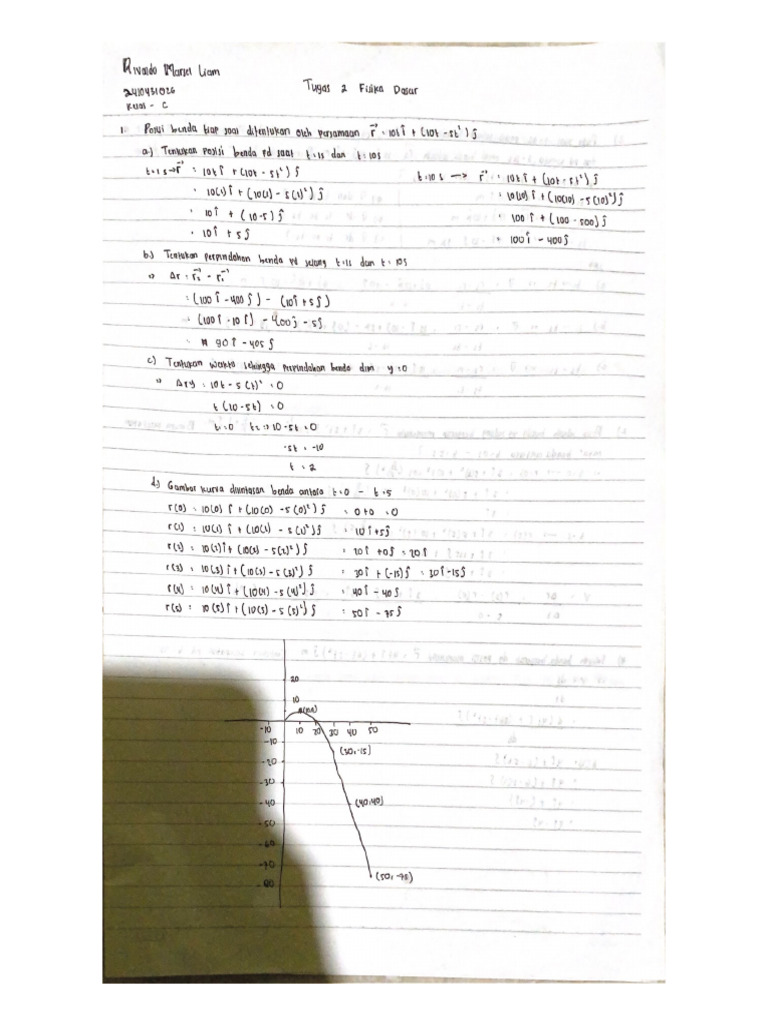 Rivaldo Marsel Liam
2410431026
Kelas - C
Tugas 2 Fisika Dasar
1. Posisi benda tiap saat ditentukan oleh persamaan r⃗ = 10t î + (10t - 5t²) ĵ
a.) Tentukan posisi benda pd saat t=1s dan t=10s
t=1s → r⃗ = 10t î + (10t - 5t²) ĵ
= 10(1) î + (10(1) - 5(1)²) ĵ
= 10 î + (10-5) ĵ
= 10 î + 5 ĵ
t=10 s → r⃗ = 10t î + (10t - 5t²) ĵ
= 10(10) î + (10(10) - 5(10)²) ĵ
= 100 î + (100 - 500) ĵ
= 100 î - 400 ĵ
b.) Tentukan perpindahan benda pd selang t=1s dan t=10s
⇒ Δr = r⃗₂ - r⃗₁
= (100 î - 400 ĵ) - (10 î + 5 ĵ)
= (100 î - 10 î) - 400 ĵ - 5 ĵ
= 90 î - 405 ĵ
c.) Tentukan waktu sehingga perpindahan benda dlm y=0
⇒ Δry = 10t - 5(t)² = 0
t (10 - 5t) = 0
t₁=0 t₂ => 10 - 5t = 0
-5t = -10
t = 2
d.) Gambar kurva diuntasan benda antara t=0 - t=5
r(0) = 10(0) î + (10(0) - 5(0)²) ĵ = 0+0 = 0
r(1) = 10(1) î + (10(1) - 5(1)²) ĵ = 10 î + 5 ĵ
r(2) = 10(2) î + (10(2) - 5(2)²) ĵ = 20 î + 0 ĵ = 20 î
r(3) = 10(3) î + (10(3) - 5(3)²) ĵ = 30 î + (-15) ĵ = 30 î - 15 ĵ
r(4) = 10(4) î + (10(4) - 5(4)²) ĵ = 40 î - 40 ĵ
r(5) = 10(5) î + (10(5) - 5(5)²) ĵ = 50 î - 75 ĵ
20
10
-10 10 20 30 40 50
-10
(30, -15)
-20
-30
-40
(40, 40)
-50
-60
-70
(50, -75)
-80